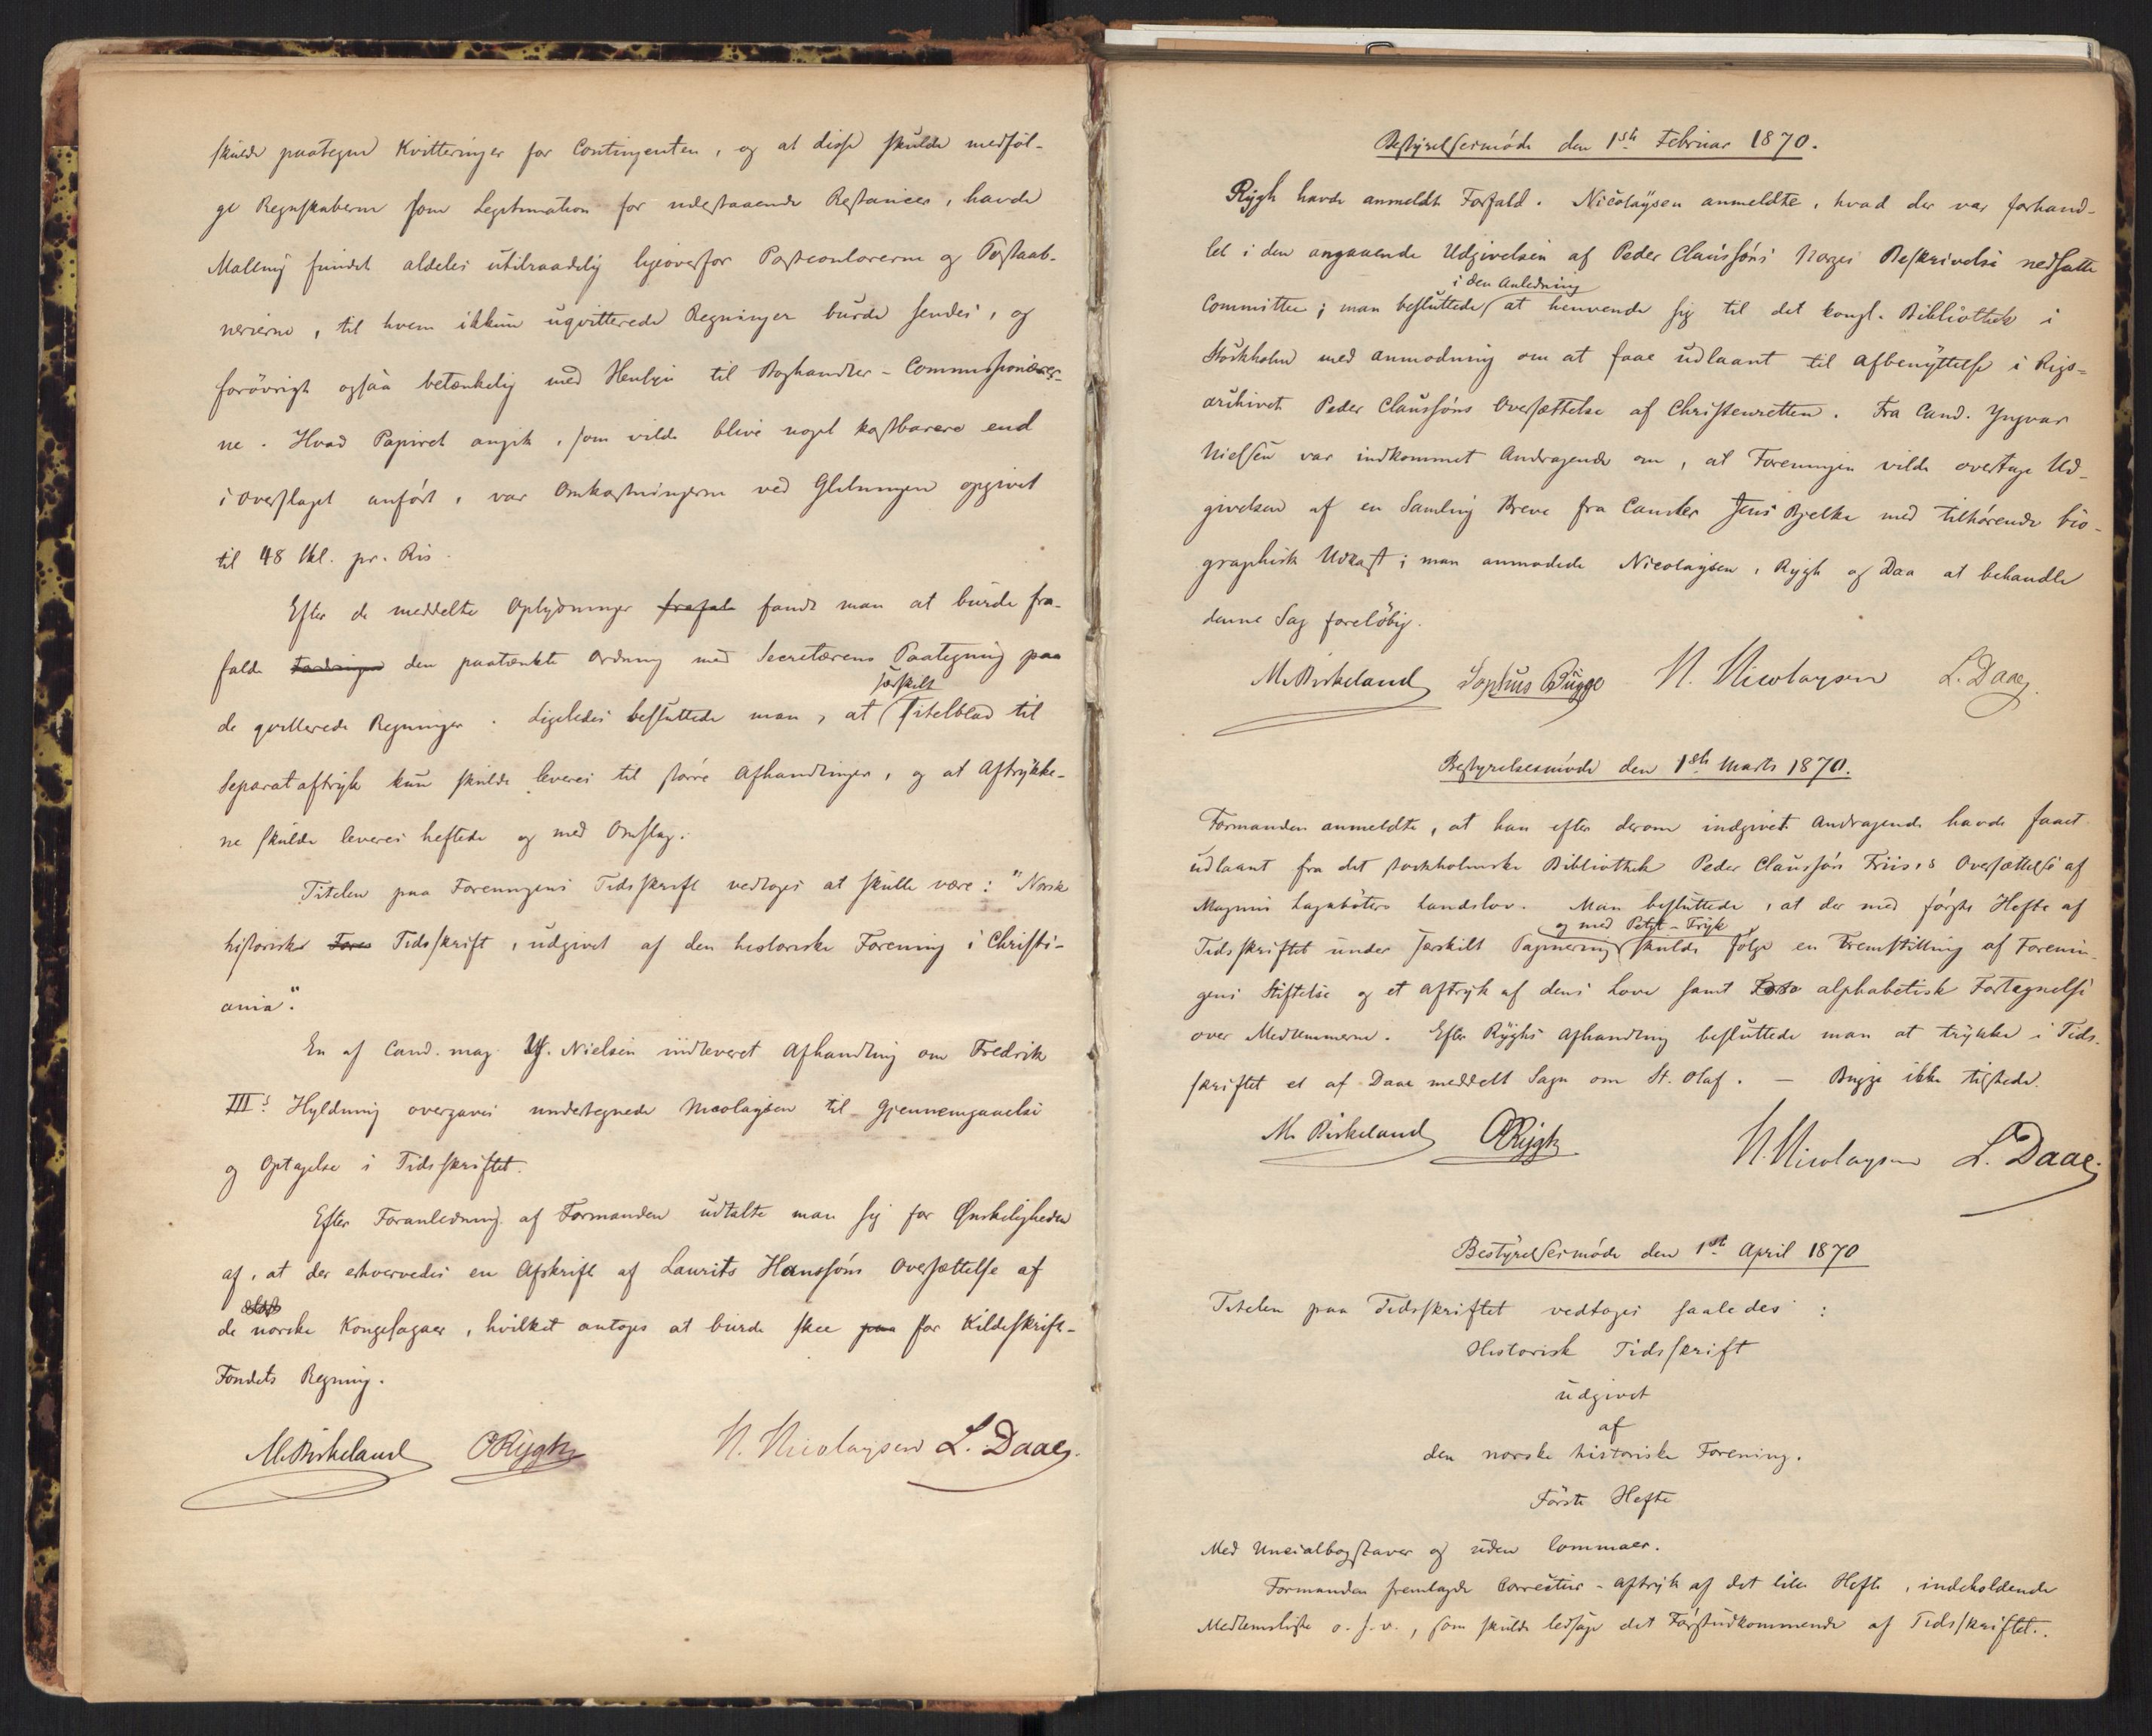 skulde paategne Kvitteringer for Contingenten, og at disse skulde medföl-
ge Regnskaberne som Legitimation for udestaaende Restancer, havde
Malling fundet aldeles utilraadelig ligeoverfor Postcontorerne og Postaab-
nerierne, til hvem ikkun uqvitterede Regninger burde sendes, og
forövrigt ogsaa betænkelig med Hensyn til Boghandler-Commissionærer-
ne. Hvad Papiret angik, som vilde blive noget kostbarere end
i Overslaget anfört, var Omkostningerne ved Glitningen opgivet
til 48 Skl. pr. Ris.
Efter de meddelte Oplysninger frafal fandt man at burde fra-
falde den paatænkte Ordning med Secretærens Paategning paa
særskilt
de qvitterede Regninger. Ligeledes besluttede man, at Titelblad til
Separataftryk kun skulde leveres til större Afhandlinger, og at Aftrykke-
ne skulde leveres heftede og med Omslag.
Titelen paa Foreningens Tidsskrift vedtoges at skulle være: "Norsk
historisk Fores Tidsskrift, udgivet af den historiske Forening i Christi-
ania".
En af Cand. mag. Y. Nielsen indleveret Afhandling om Fredrik
III's Hyldning overgaves undertegnede Nicolaysen til Gjennemgaaelse
og Optagelse i Tidsskriftet.
Efter Foranledning af Formanden udtalte man sig for Ønskeligheden
af, at der erhvervedes en Afskrift af Laurits Hanssöns Oversættelse af
de norske Kongesagaer, hvilket antoges at burde skee paa for Kildeskrift-
Fondets Regning.
M. Birkeland O Rygh N. Nicolaysen L. Daae.
Bestyrelsesmöde den 1ste Februar 1870.
Rygh havde anmeldt Forfald. Nicolaysen anmeldte, hvad der var forhand-
let i den angaaende Udgivelsen af Peder Claussöns Norges Beskrivelse nedsatte
i den Anledning
Committee; man besluttede at henvende sig til det kongl. Bibliothek i
Stockholm med Anmodning om at faae udlaant til Afbenyttelse i Rigs-
archivet Peder Claussöns Oversættelse af Christenretten. Fra Cand. Yngvar
Nielsen var indkommet Andragende om, at Foreningen vilde overtage Ud-
givelsen af en Samling Breve fra Cantsler Jens Bjelke med tilhörende bio-
graphisk Udkast; man anmodede Nicolaysen, Rygh og Daa at behandle
denne Sag foreløbig.
M. Birkeland Sophus Bugge N. Nicolaysen L. Daae.
Bestyrelsesmöde den 1ste Marts 1870.
Formanden anmeldte, at han efter derom indgivet Andragende havde faaet
udlaant fra det stockholmske Bibliothek Peder Claussön Friis's Oversættelse af
Magnus Lagaböters Landslov. Man besluttede, at der med förste Hefte af
og med Petit-Tryk
Tidsskriftet under særskilt Paginering skulde følge en Fremstilling af Forenin-
gens Stiftelse og et Aftryk af dens Love samt alphabetisk Fortegnelse
over Medlemmerne. Efter Ryghs Afhandling besluttede man at trykke i Tids-
skriftet et af Daae meddelt Sagn om St. Olaf. — Bugge ikke tilstede.
M. Birkeland O Rygh N. Nicolaysen L. Daae.
Bestyrelsesmöde den 1ste April 1870
Titelen paa Tidsskriftet vedtoges saaledes:
Historisk Tidsskrift
udgivet
af
den norske historiske Forening.
Förste Hefte
Med Uncialbogstaver og uden Commaer.
Formanden fremlagde Correctur-Aftryk af det lille Hefte, indeholdende
Medlemsliste o. s. v., som skulde ledsage det Förstudkommende af Tidsskriftet.